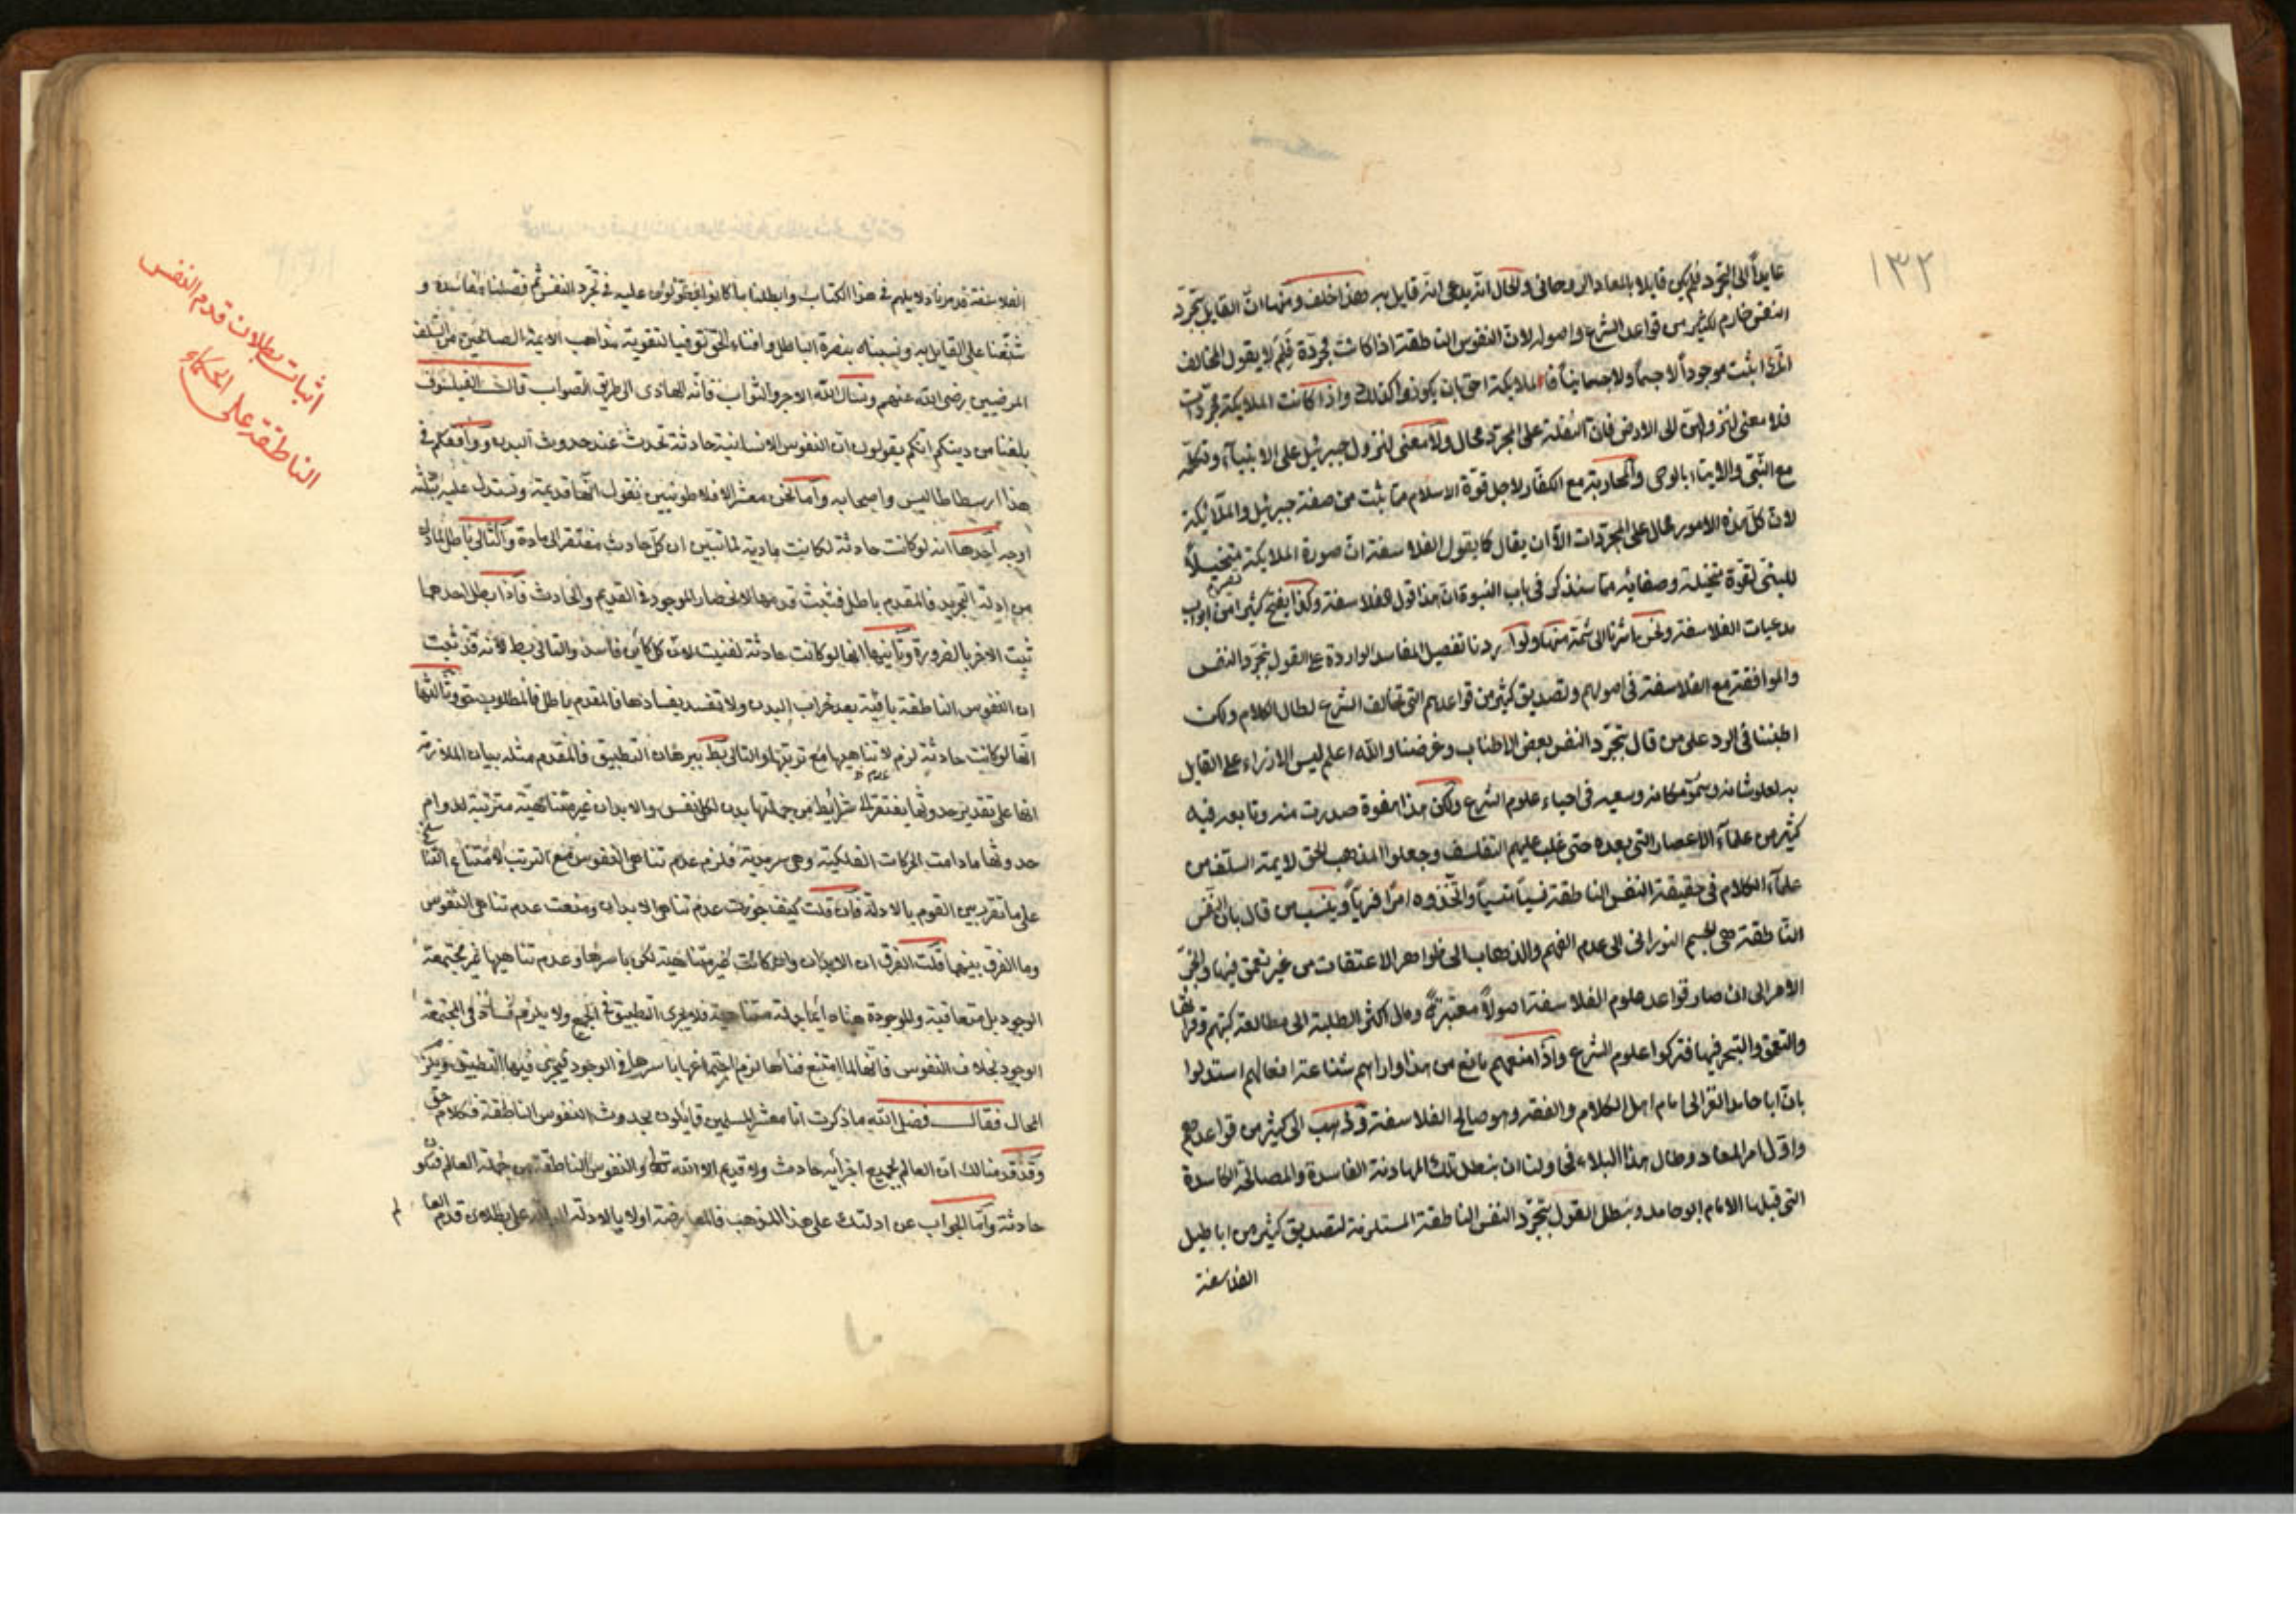 ١٣٢
عايداً الى التجرد فلم يكن قايلا بالمعاد الروحانى والحال انه يدعى انه قايل به وهذا خلف ومنها ان القايل بتجرد
النفس خارم لكثير من قواعد الشرع واصوله لان النفوس الناطقة اذا كانت مجردة فلم لا يقول المخالف
اذا ثبت موجوداً لا جسماً ولا جسمانياً فالملايكة احق بان يكونوا كذلك واذا كانت الملايكة مجردات
فلا معنى لنزولهن الى الارض فان النقلة على المجرد محال ولا معنى لنزول جبرئيل على الانبياء وتكلمه
مع النبى والايتاء بالوحى والمحاربة مع الكفار لاجل قوة الاسلام مما ثبت من صفة جبرئيل والملائكة
لان كل هذه الامور محال على المجردات الا ان يقال كما يقول الفلاسفة ان صورة الملايكة يتخيلاً
للنبى لقوة متخيلة وصفايه مما سنذكر فى باب النبوة ان هذا قول الفلاسفة وكذا يفتح كثيرا من ابواب
مدعيات الفلاسفة ونحن اشرنا الى شمة منها ولو اردنا تفصيل المفاسد الواردة على القول بتجرد النفس
والموافقة مع الفلاسفة فى اصولهم وتصديق كثير من قواعدهم التى تخالف الشرع لطال الكلام ولكن
اطنبنا فى الرد على من قال بتجرد النفس بعض الاطناب وغرضنا والله اعلم ليس الازراء على القايل
به لعلو شانه وسمو مكانه وسعيه فى احياء علوم الشرع ولكن هذا هفوة صدرت منه وتابعه فيه
كثير من علماء الاعصار التى بعده حتى غلب عليهم التفلسف وجعلوا المذهب الحق لايمة السلف من
علماء الكلام فى حقيقة النفس الناطقة نسياً منسياً واتخذوه امراً فرياً وينسب من قال بان النفس
الناطقة هى الجسم النورانى الى عدم الفهم والذهاب الى ظواهر الاعتقادات من غير تعمق فيها وانجر
الامر الى ان صار قواعد علوم الفلاسفة اصولاً معتبرة ومال اكثر الطلبة الى مطالعة كتبهم وقرائتها
والتعمق والتبحر فيها فتركوا علوم الشرع واذا منعهم مانع من هذا واراهم شناعة افعالهم استدلوا
بان ابا حامد الغزالى امام اهل الكلام والفقه وهو صالح الفلاسفة وذهب الى كثير من قواعدهم
واول امر المعاد وطال هذا البلاء فحاولنا ان نبطل تلك المهادنة الفاسدة والمصالحة الكاسدة
التى قبلها الامام ابو حامد ونبطل القول بتجرد النفس الناطقة المستلزمة لتصديق كثير من اباطيل
الفلاسفة
الفلاسفة قدمرنا دلايلهم فى هذا الكتاب وابطلنا ما كانوا يقولون عليه فى تجرد النفس ثم فصلنا مفاسده و
شنعنا على القايل به ونسبناه بنصرة الباطل وافناء الحق توقيا لتقوية مذاهب الايمة الصالحين من السلف
المرضيين رضى الله عنهم ونسال الله الاجر والثواب فانه الهادى الى طريق الصواب قال الفيلسوف
بلغنا من دينكم انكم يقولون ان النفوس الانسانية حادثة تحدث عند حدوث البدن ووافقكم فى
هذا ارسطاطاليس واصحابه واما نحن معشر الافلاطونيين نقول انها قديمة ونستدل عليه بثلثة
اوجه احدها انه لو كانت حادثة لكانت مادية لما تبين ان كل حادث مفتقر الى مادة والتالى باطل لما مر
من ادلة التجريد فالمقدم باطل فثبت قدمها لانحصار الموجود فى القديم والحادث فاذا بطل احدهما
ثبت الاخر بالضرورة وثانيها انها لو كانت حادثة لفنيت لان كل كاين فاسد والتالى بط لانه قد ثبت
ان النفوس الناطقة باقية بعد خراب البدن ولا تفسد بفسادها فالمقدم باطل فالمطلوب حق وثالثها
انها لو كانت حادثة لزم لا تناهيها مع ترتبها والتالى بط ببرهان التطبيق فالمقدم مثله بيان الملازمة
انها على تقدير حدوثها يفتقر الى شرايط من جملتها بدن لكل نفس والابدان غير متناهية مترتبة لدوام
حدوثها ما دامت الحركات الفلكية وهى سرمدية فلزم عدم تناهى النفوس مع الترتب لامتناع التناسخ
على ما تقرر بين القوم بالادلة فان قلت كيف جوزت عدم تناهى الابدان ومنعت عدم تناهى النفوس
وما الفرق بينهما قلت الفرق ان الابدان وان كانت غير متناهية لكن باسرها وعدم تناهيها غير مجتمعة
الوجود بل متعاقبة والموجودة منها دائما جملة متناهية فلا يجرى التطبيق فى الجميع ولا يلزم فساد فى المجتمعة
الوجود بخلاف النفوس فانها لما امتنع فنائها لزم اجتماعها باسرها فى الوجود فيجرى فيها التطبيق ويلزم
المحال فقال فضل الله ما ذكرت انا معشر المسلمين قائلون بحدوث النفوس الناطقة فكلام حق
وقد قدمنا لك ان العالم بجميع اجزائه حادث ولا قديم الا الله تعا والنفوس الناطقة من جملة العالم فتكون
حادثة واما الجواب عن ادلتك على هذا المذهب فالمعارضة اولا بالادلة الدالة على بطلان قدم
اثبات بطلان قدم النفس
الناطقة على الحكماء